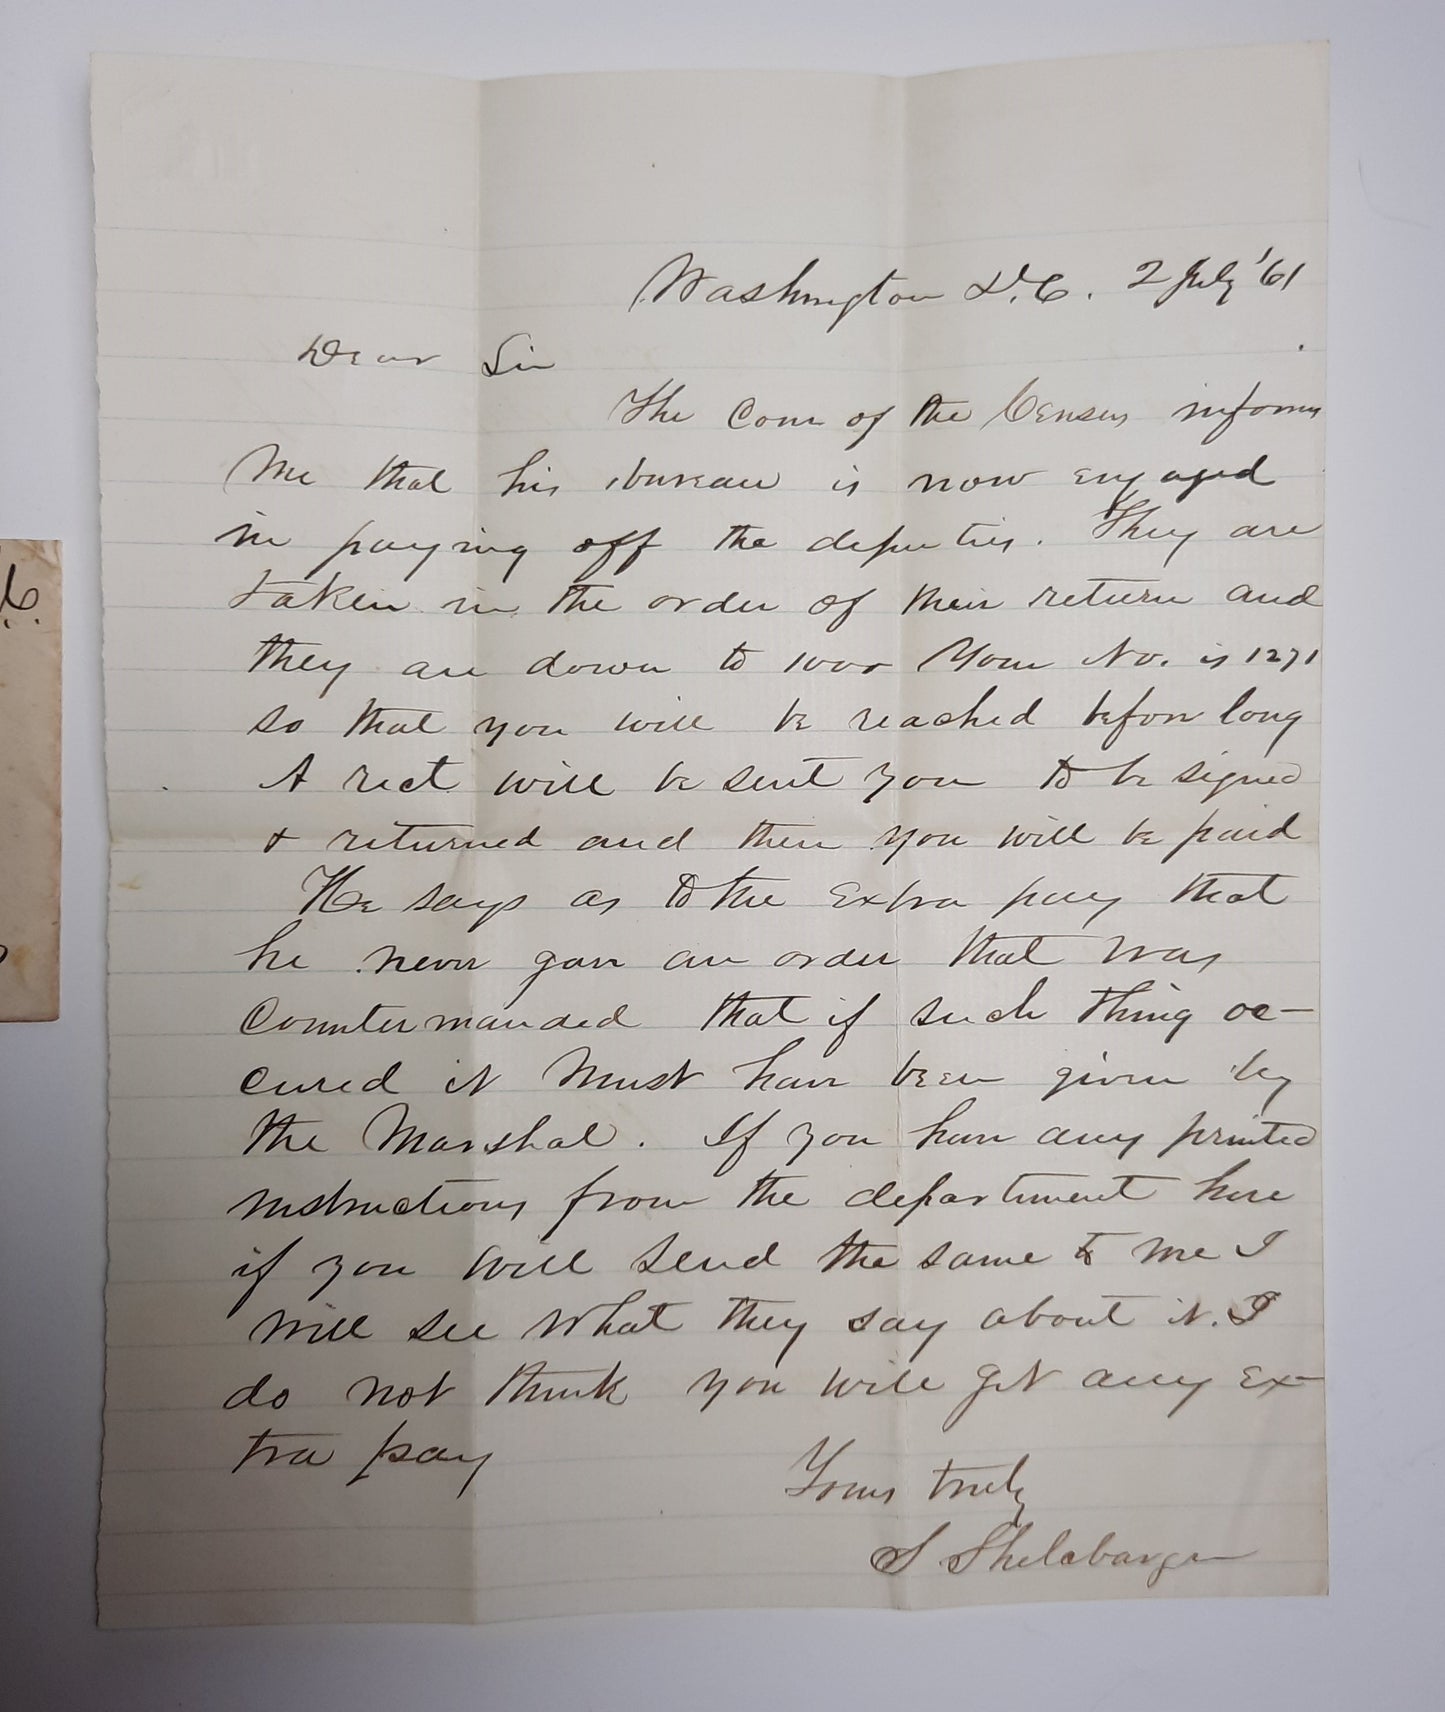 Washington D.C. 2 July '61
Dear Sir
The Com of the Census informs
me that his bureau is now engaged
in paying off the deputies. They are
taken in the order of their return and
they are down to 1000 Your No. is 1271
so that you will be reached before long
A rect will be sent you to be signed
& returned and then you will be paid
He says as to the extra pay that
he never gave an order that was
countermanded that if such thing oc-
cured it must have been given by
the Marshal. If you have any printed
instructions from the department here
if you will send the same to me I
will see what they say about it. I
do not think you will get any ex-
tra pay
Yours truly
S Shelabarger